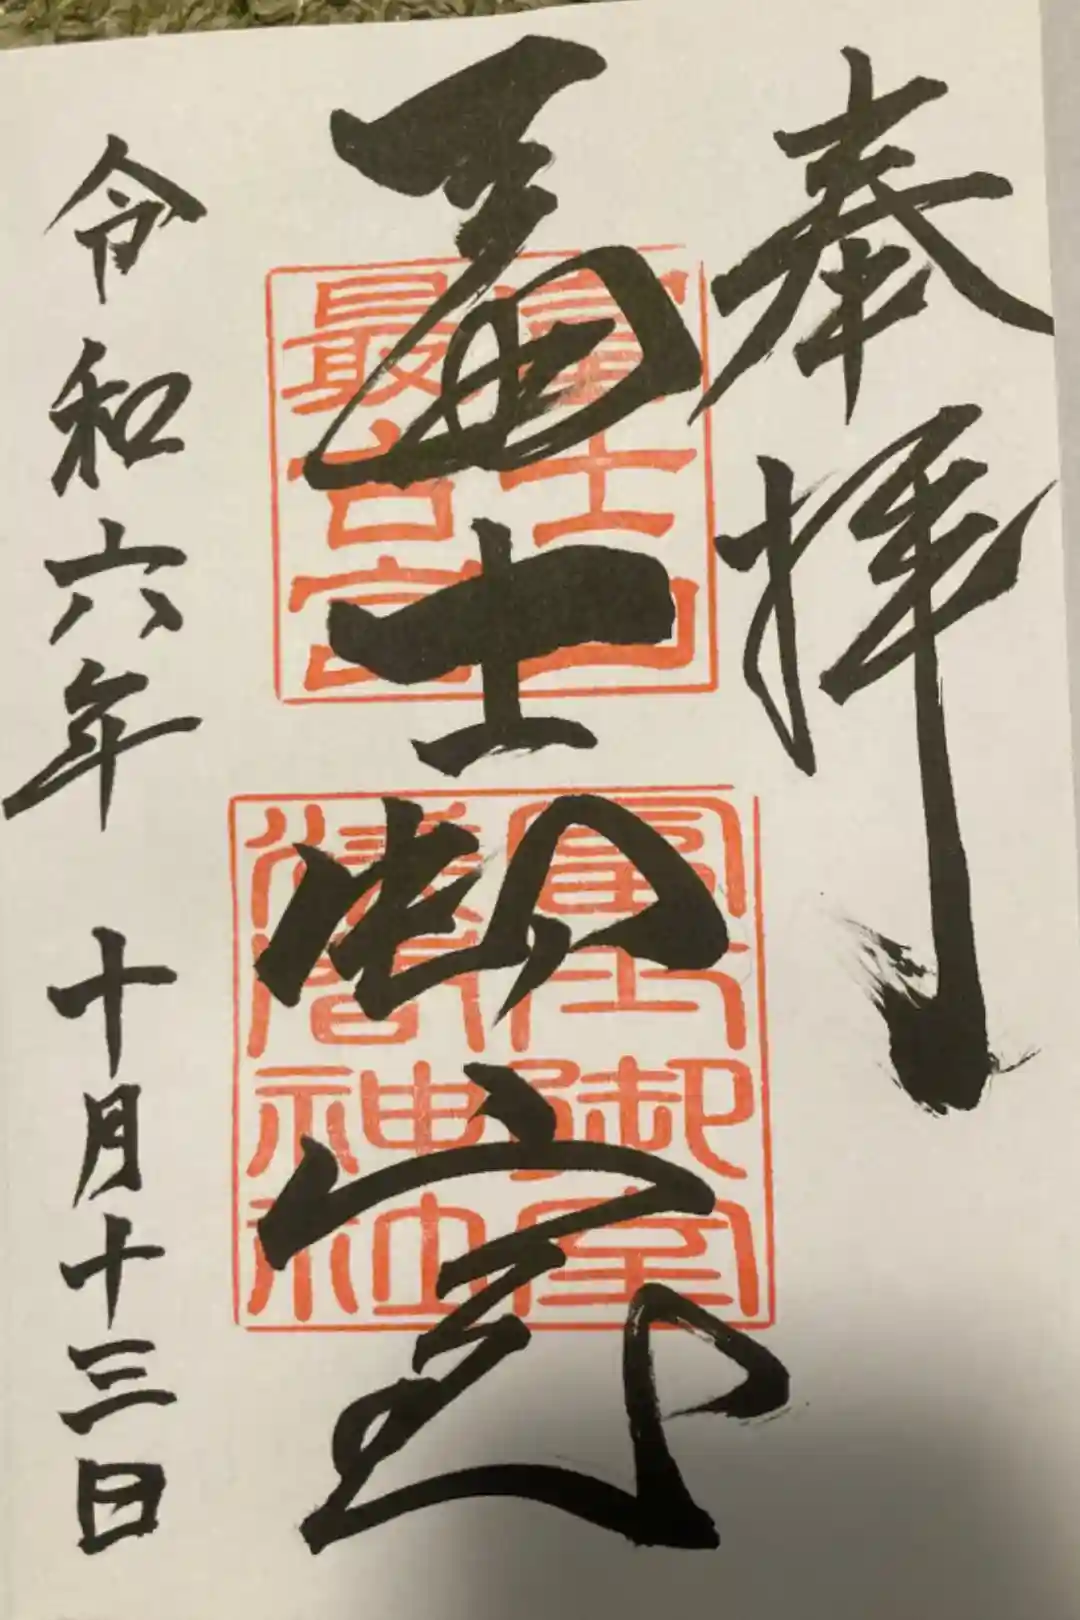 奉拝
富士御室
富士山
最古宮
富士御室
淺間神社
令和六年 十月十三日